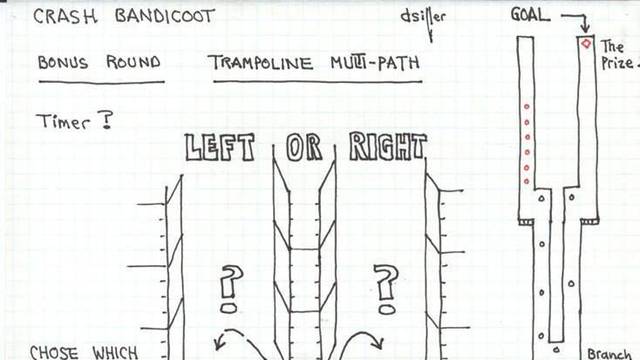 CRASH BANDICOOT
dsiller
GOAL
BONUS ROUND
TRAMPOLINE MULTI-PATH
The
Prize.
Timer ?
LEFT OR RIGHT
? ?
CHOSE WHICH
Branch